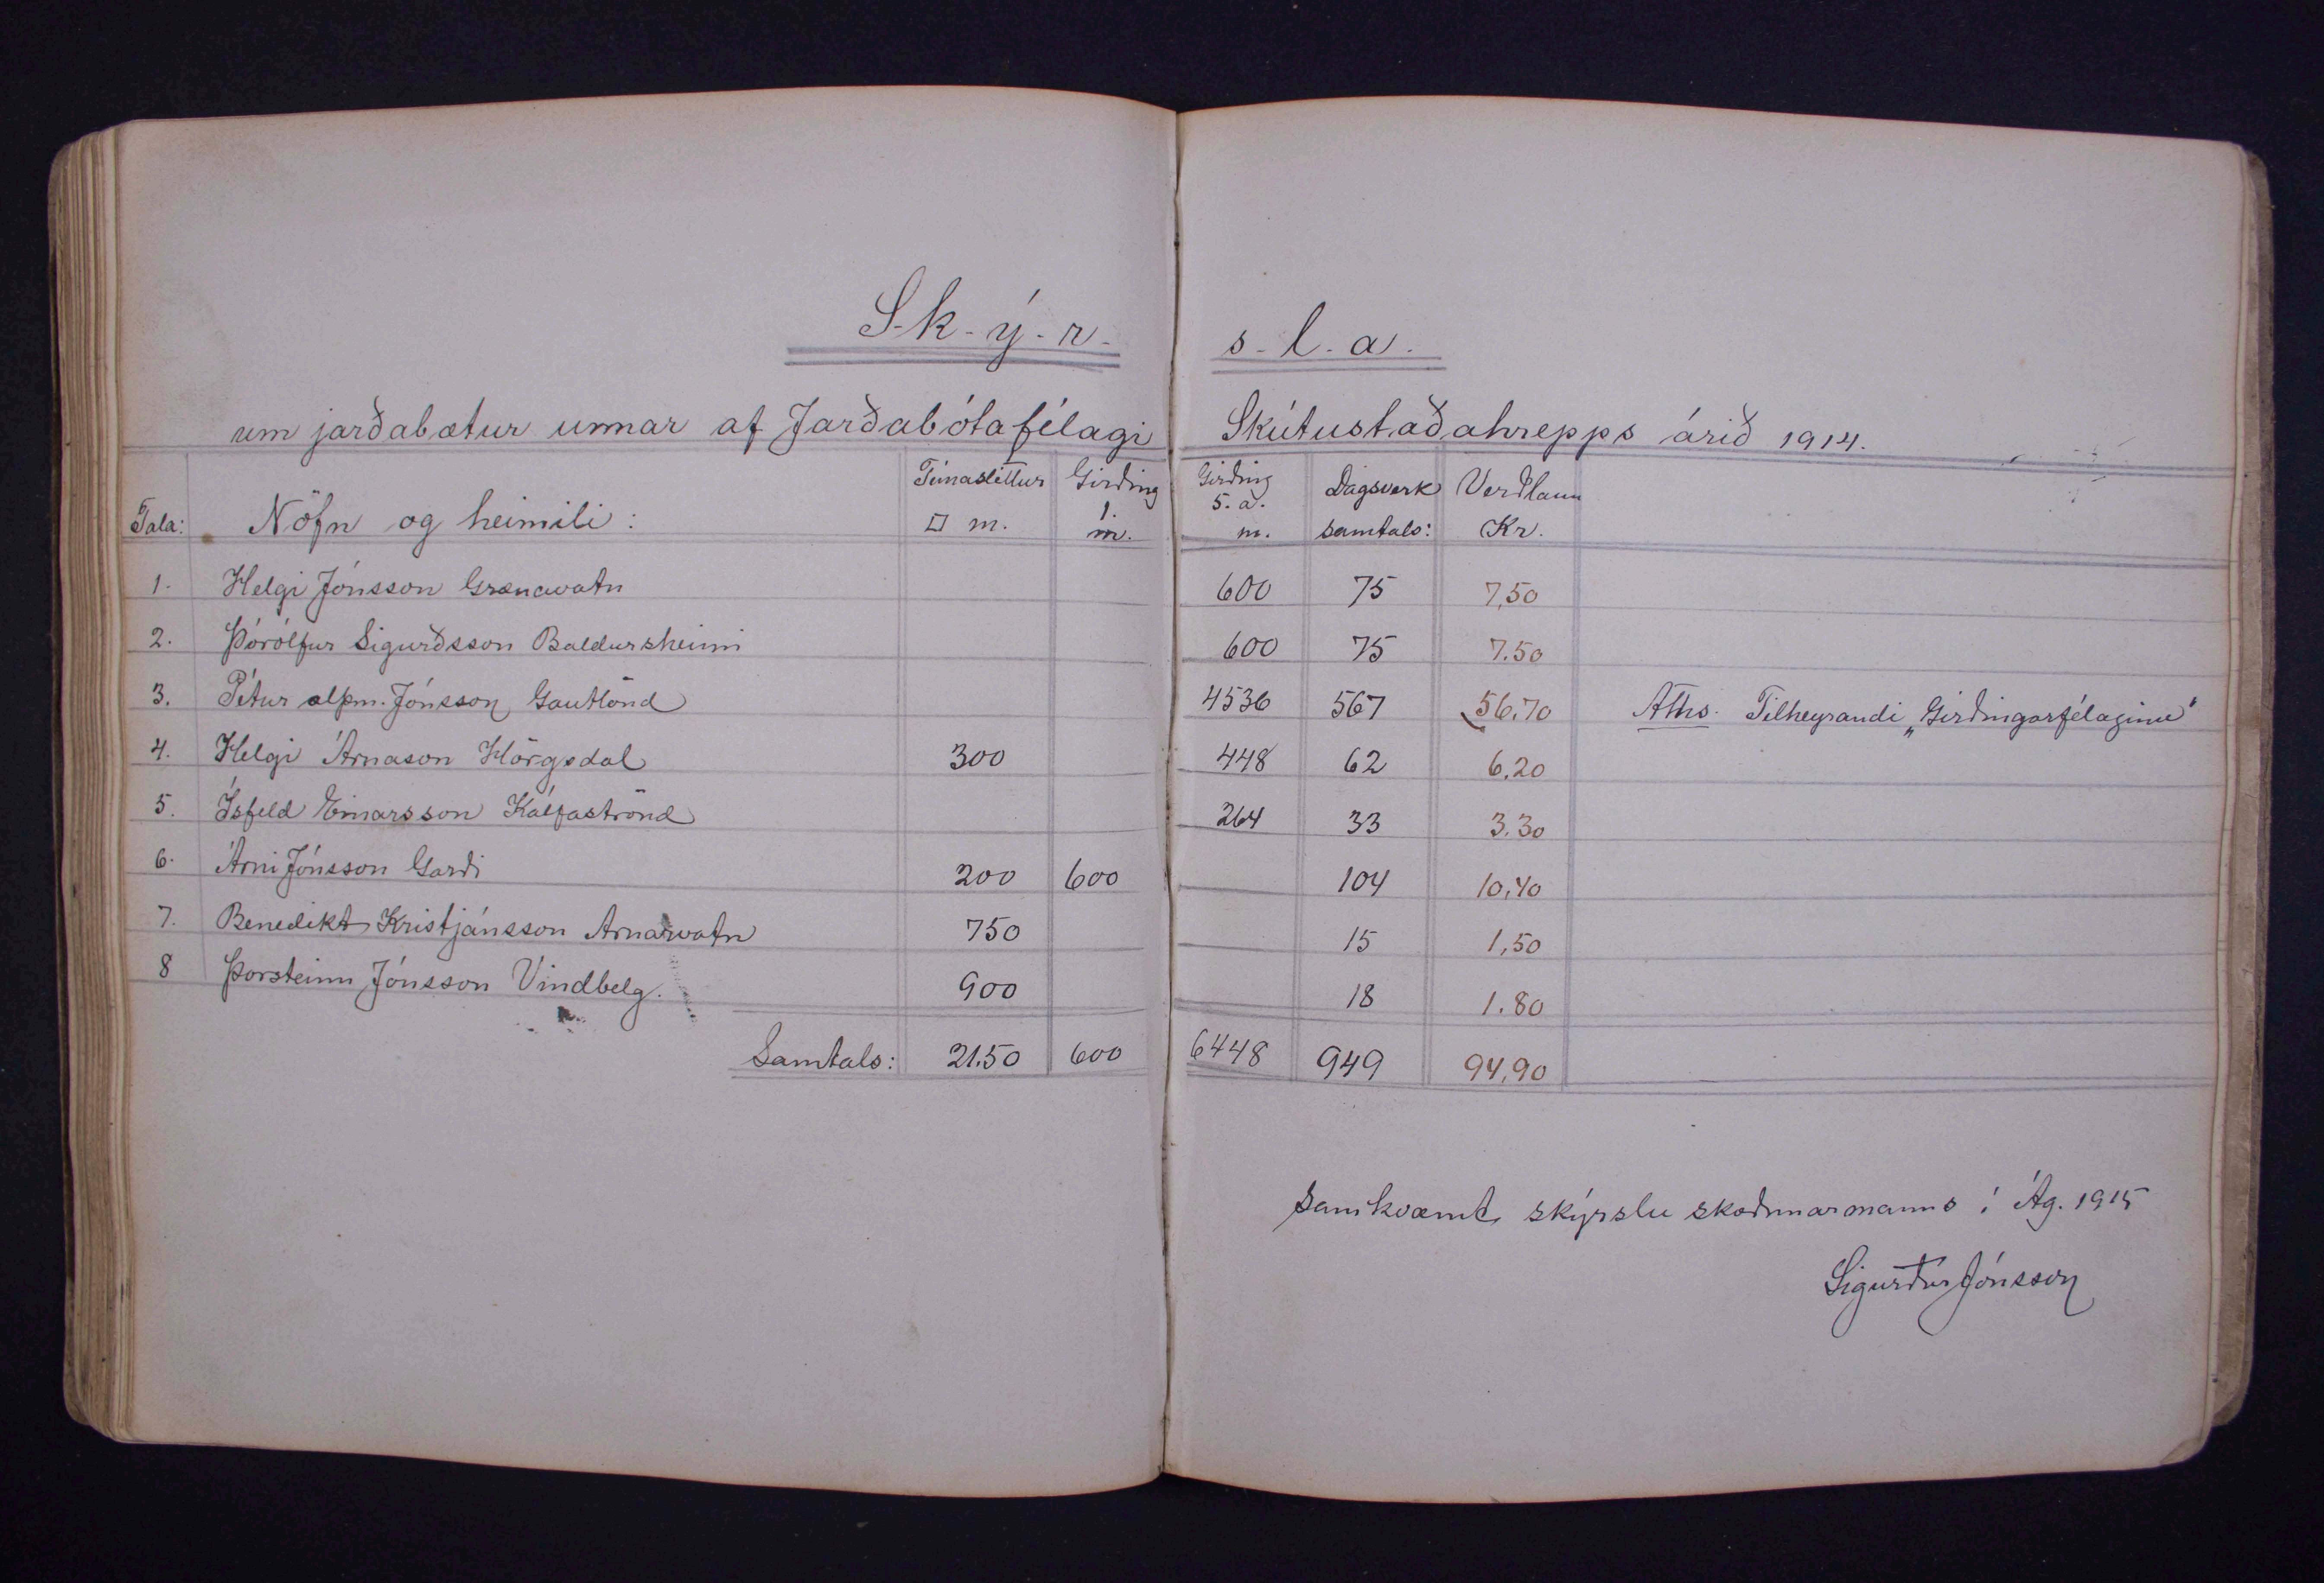 S-k-ý-r- s-l-a.
um jarðabætur unnar af Jarðabótafélagi Skútustaðahrepps árið 1914.
Tala: Nöfn og heimili: Túnasléttur □ m. Girðing 1. m. Girðing 5. a. m. Dagsverk samtals: Verðlaun Kr.
1. Helgi Jónsson Grænavatn 600 75 7,50
2. Þórólfur Sigurðsson Baldursheimi 600 75 7.50
3. Pétur alþm. Jónsson Gautlönd 4536 567 56,70 Aths. Tilheyrandi „Girðingarfélaginu"
4. Helgi Árnason Hörgsdal 300 448 62 6,20
5. Ísfeld Einarsson Kálfaströnd 264 33 3.30
6. Árni Jónsson Garði 200 600 104 10,40
7. Benedikt Kristjánsson Arnarvatn 750 15 1,50
8 Þorsteinn Jónsson Vindbelg. 900 18 1.80
Samtals: 21.50 600 6448 949 94,90
Samkvæmt skýrslu skoðunarmanns í Ág. 1915
Sigurður Jónsson